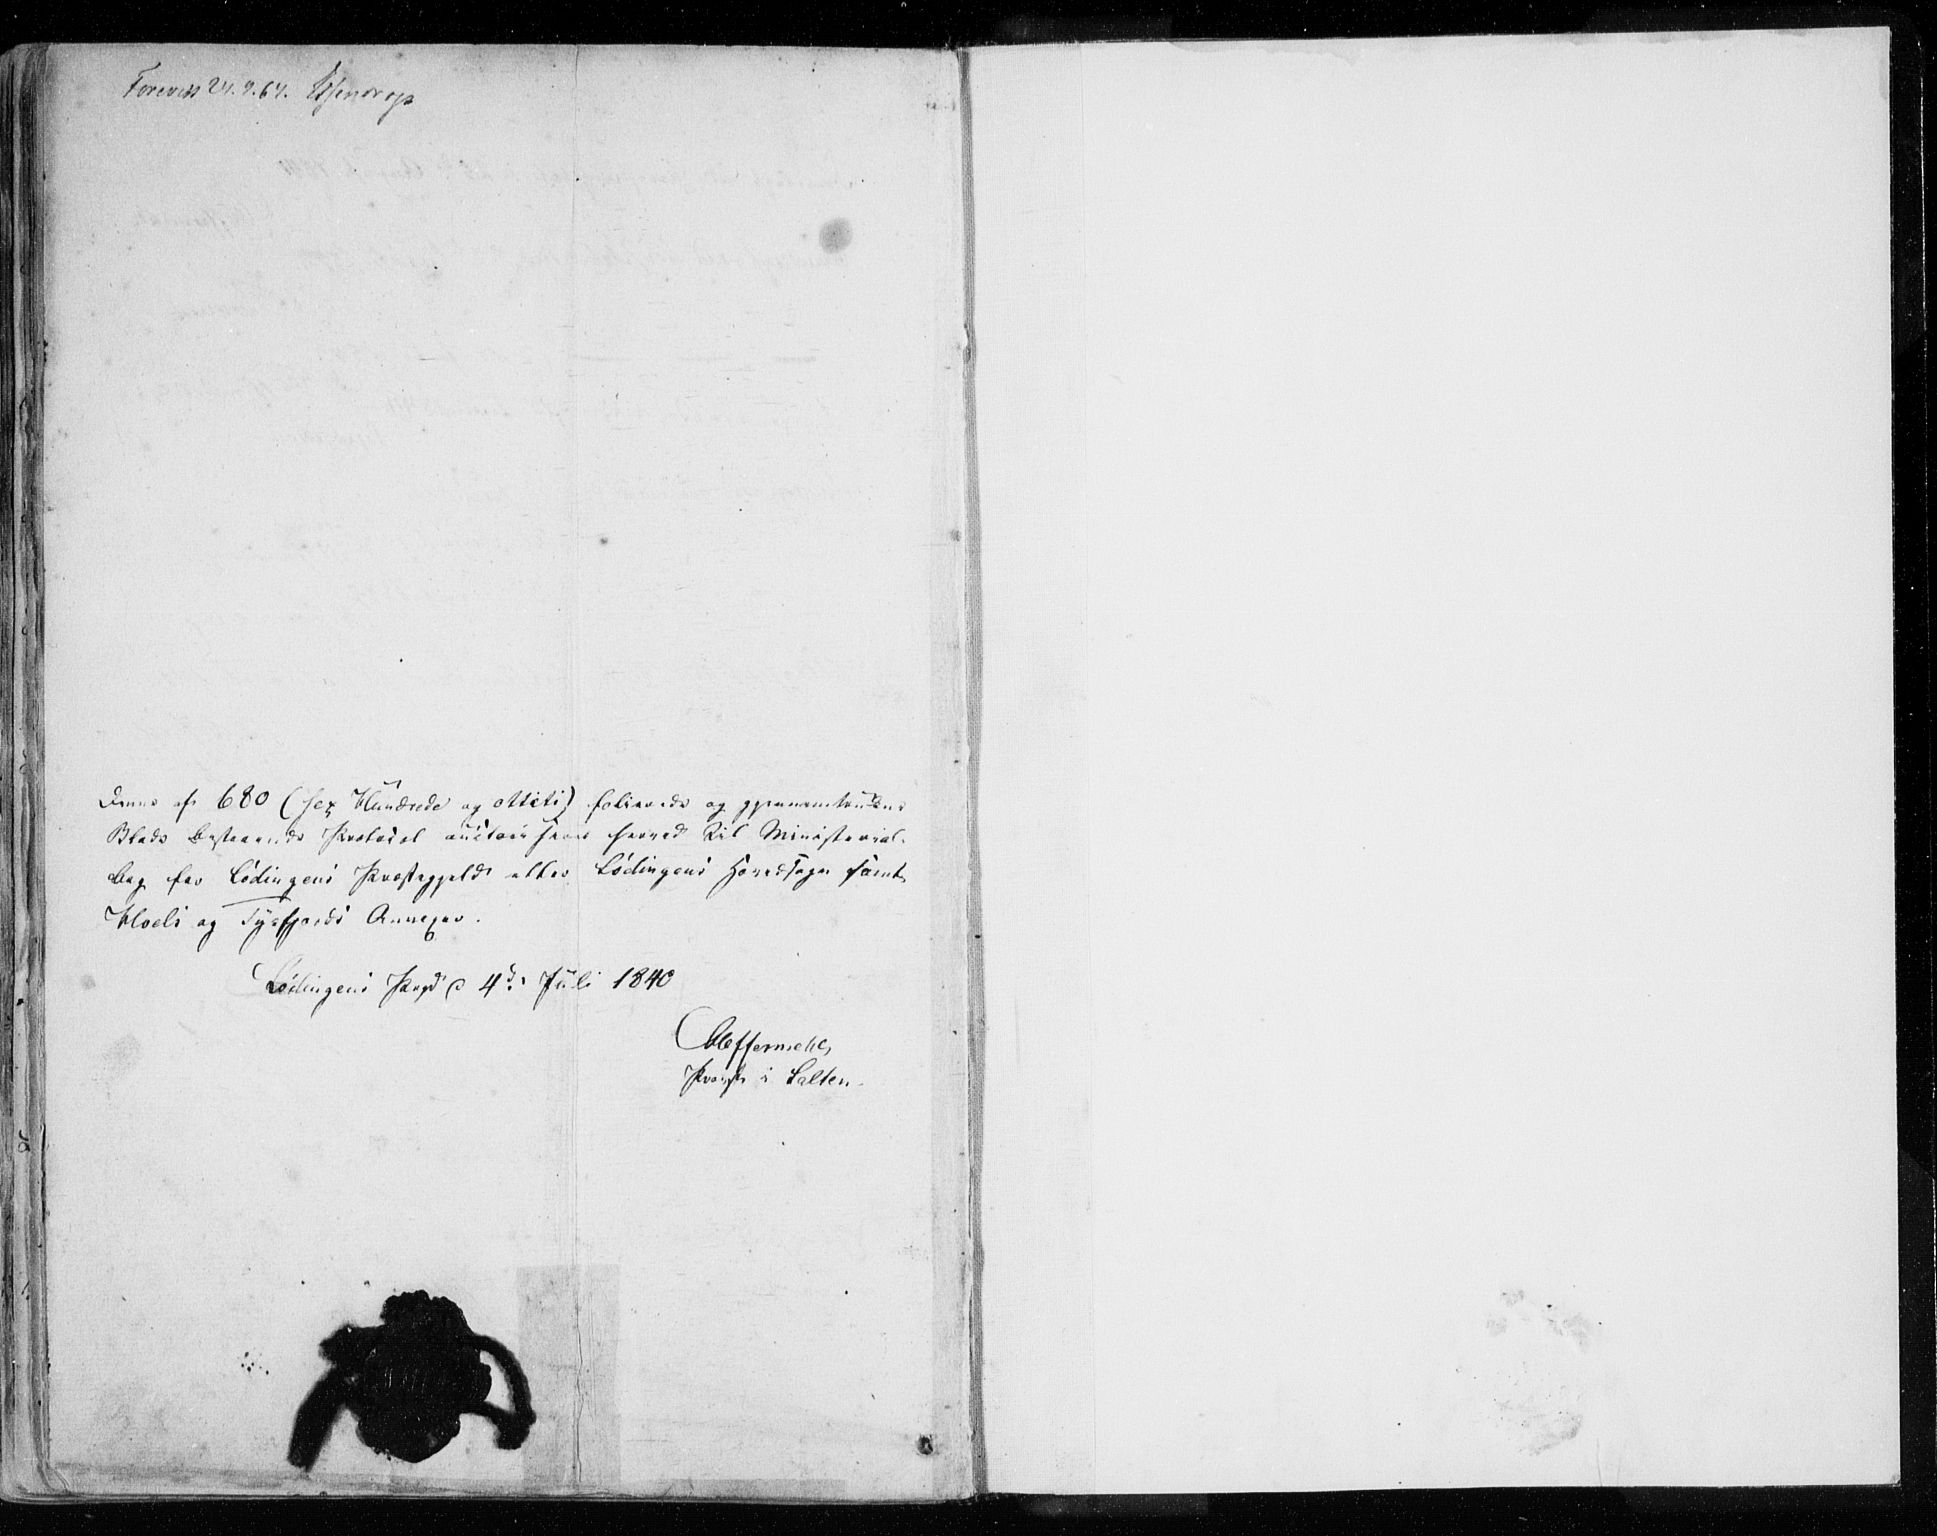 Forevist 24.9.64. Essendrop
Denne af 680 (sex Hundrede og ottiti) folierede og gjennemtrukne
Blade bestaaende Protocol auctoriseres herved til Ministerial-
bog for Lödingens Præstegjeld eller Lödingens Hovedsogn samt
Hvols og Tysfjords Annexer.
Lödingens Prgd d 4de Juli 1840
Heffermehl
Provst i Salten.